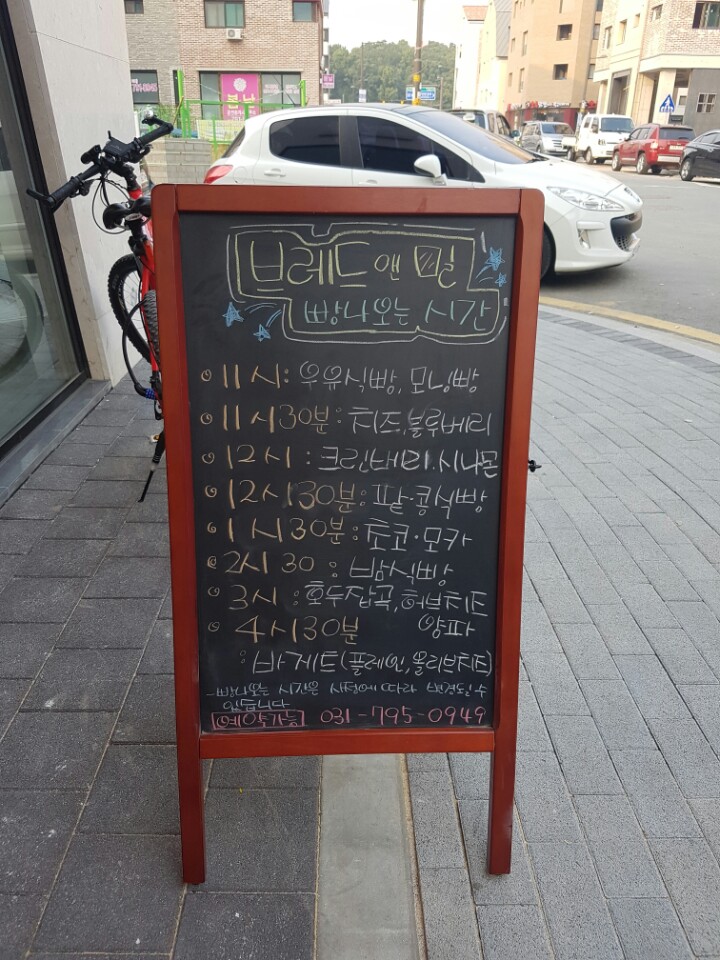 브레드 앤 밀
빵나오는 시간
11시: 우유식빵, 모닝빵
11시30분: 치즈, 블루베리
12시: 크린베리. 시나몬
12시30분: 팥·콩식빵
1시30분: 초코·모카
2시30: 밤식빵
3시: 호두잡곡, 허브치즈
양파
4시30분
: 바게트(플레인, 올리브치즈)
-빵나오는 시간은 사정에 따라 변경될 수
있습니다
예약가능 031-795-0949
봄날